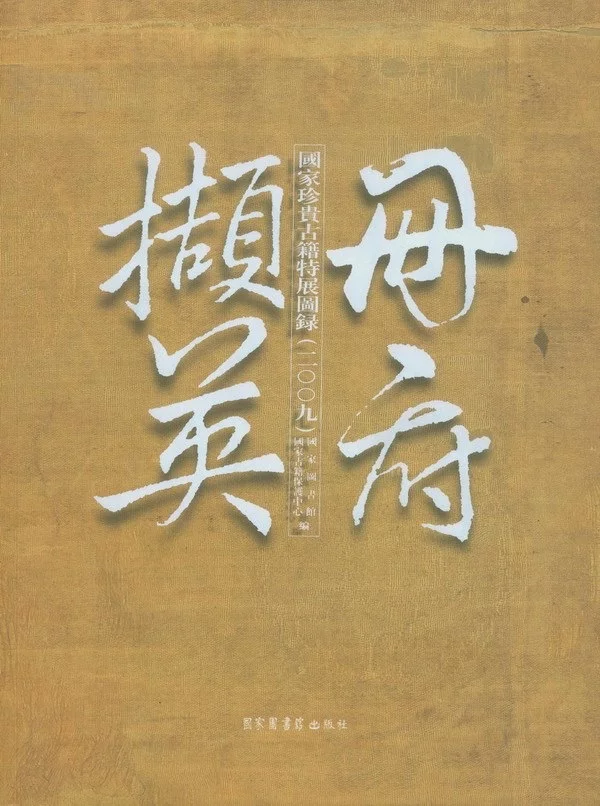 冊府
擷英
國家珍貴古籍特展圖録（二〇〇九）
國家圖書館
國家古籍保護中心
編
國家圖書館出版社